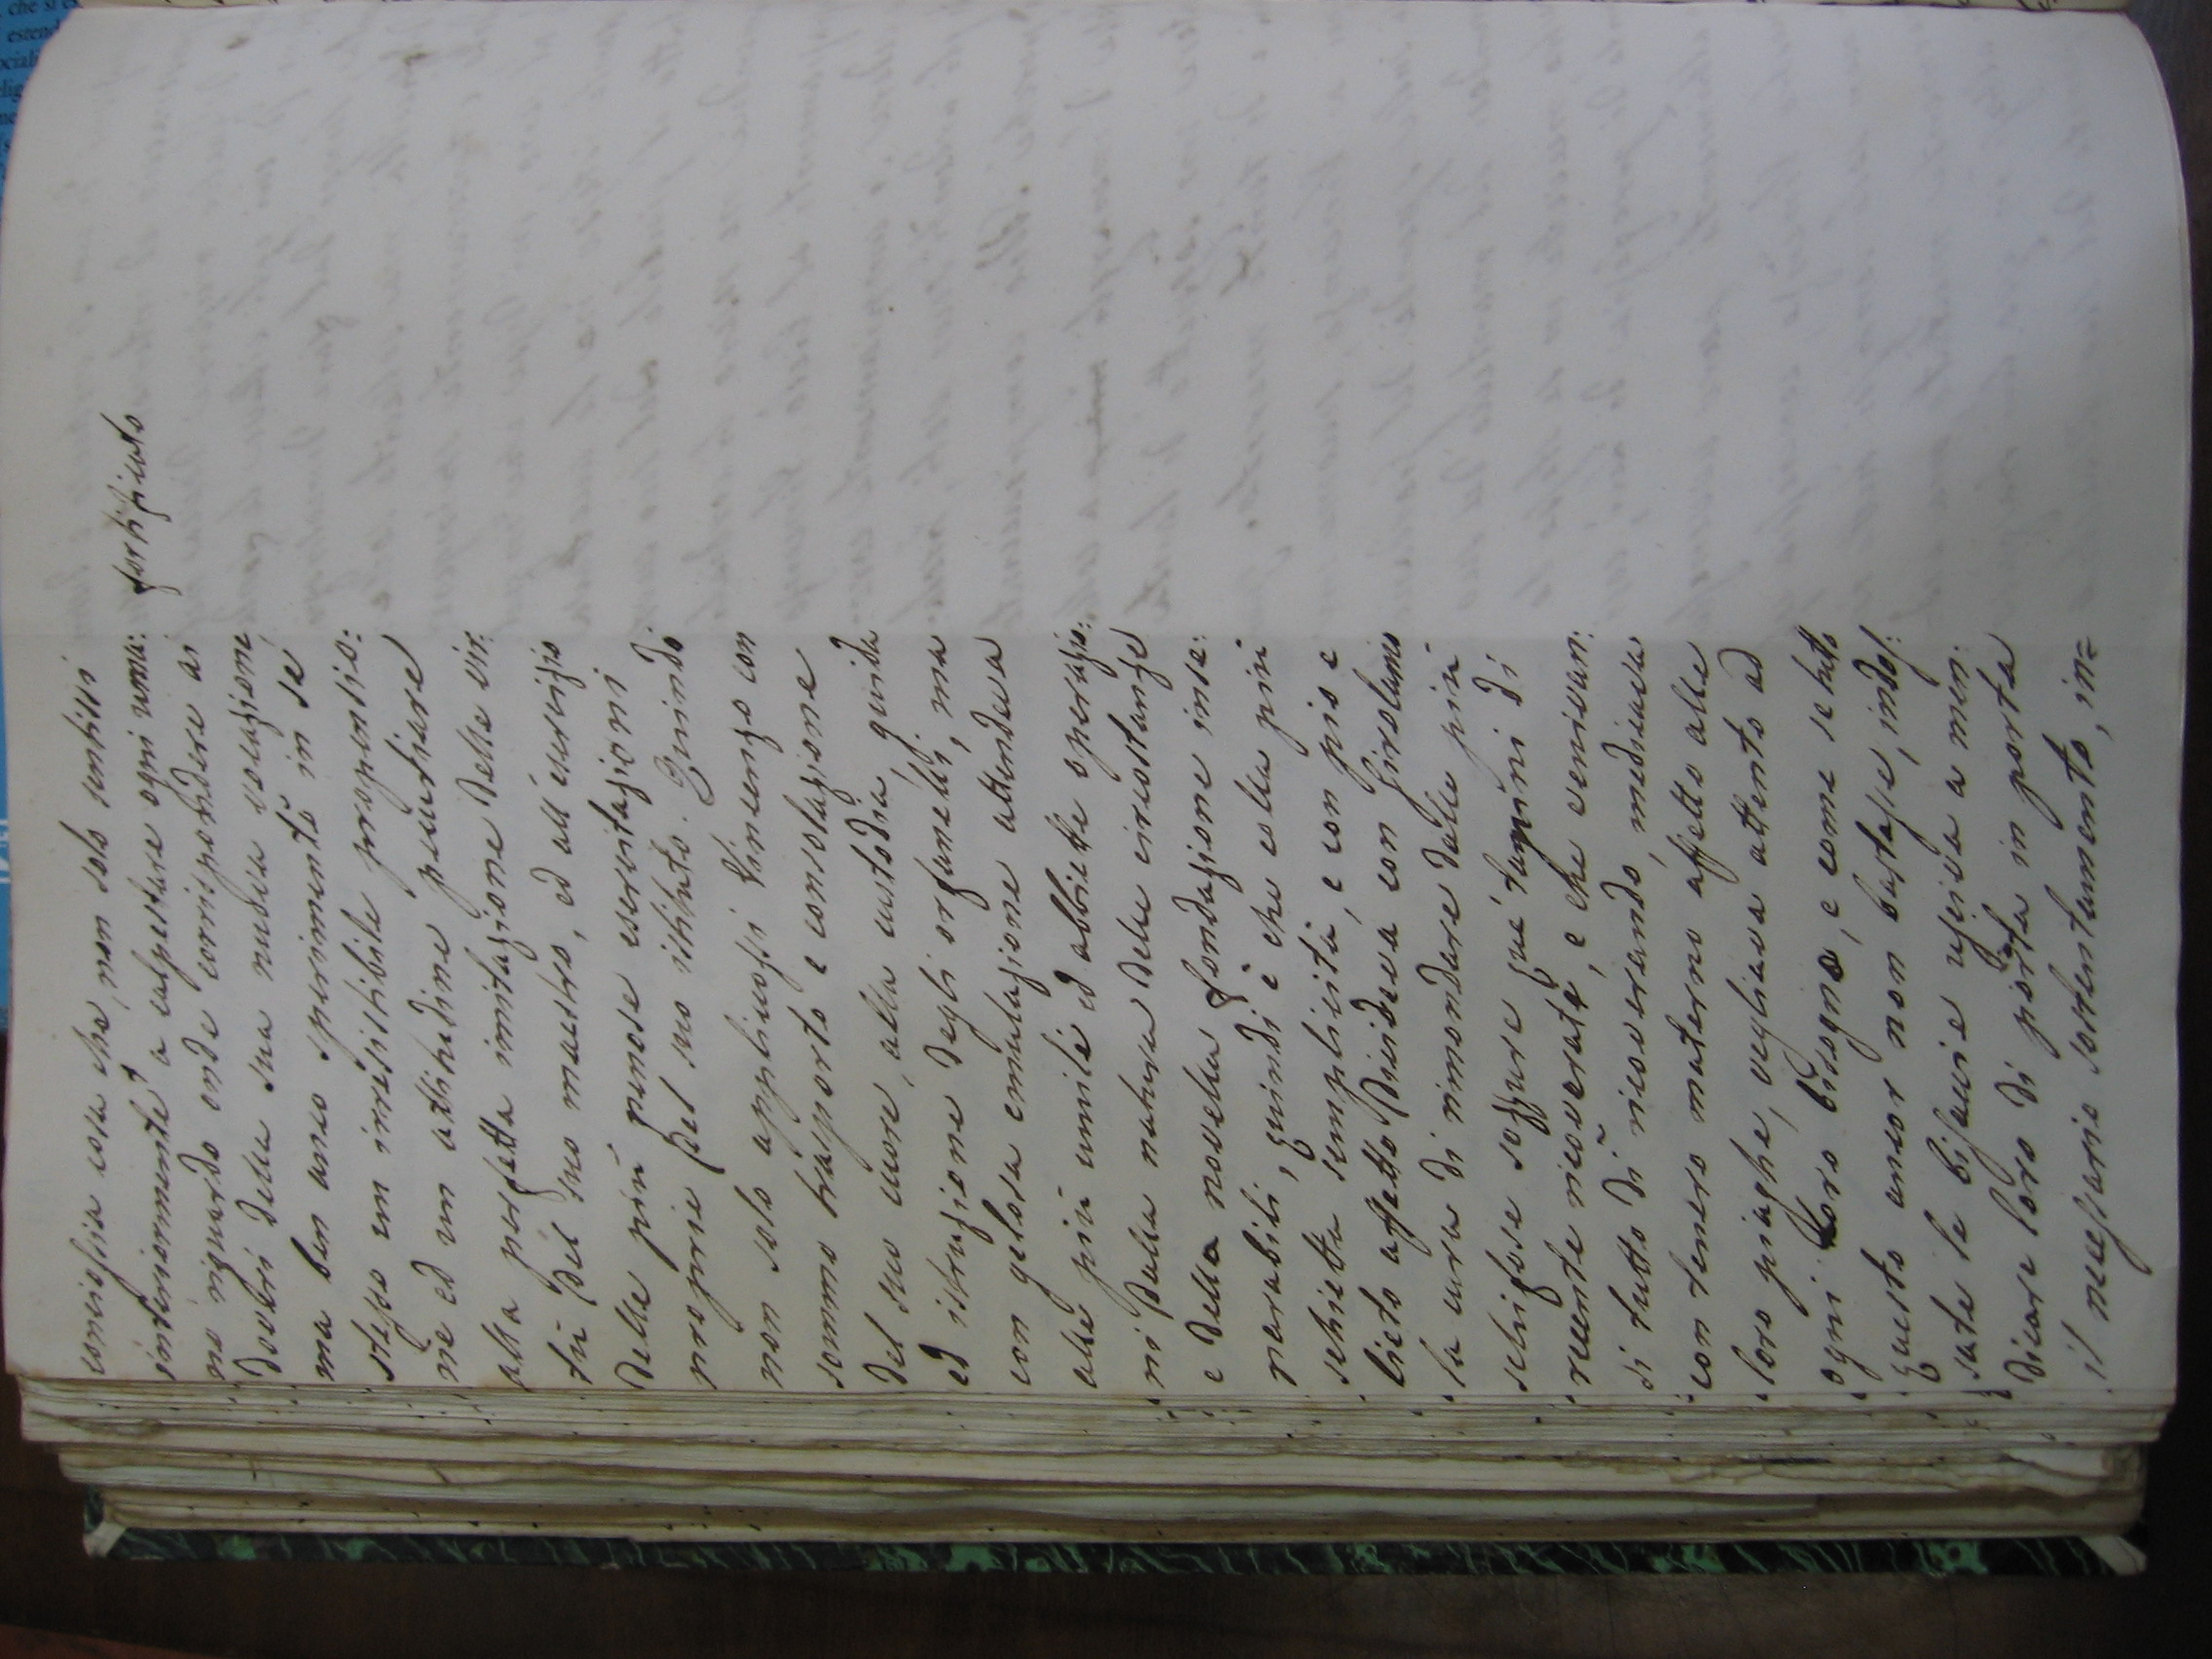 conciossia cosa che, non solo sentissi
interiormente a calpestare ogni uma:
fortificato
no riguardo onde corrispondere ai
doveri della sua nuova vocazione,
ma ben anco sperimentò in se
stesso un irresistibile propensio:
ne ed un attitudine peculiare
alla perfetta imitazione delle vir:
tù del suo maestro, ed all'esercizio
delle più penose esercitazioni
proprie del suo istituto. Quindi
non solo applicossi Vincenzo con
sommo trasporto e consolazione
del suo cuore, alla custodia, guida
ed istruzione degli orfanelli, ma
con gelosa emulazione attendeva
alle più umili ed abbiette operazio:
ni dalla natura delle circostanze
e della novella fondazione inse:
parabili, quindi è che colla più
schietta semplicità, e con pio e
lieto affetto divideva con Girolamo
la cura di rimondare dalle più
schifose sozzure que' tapini di
recente ricoverati, e che venivan:
si tutto dì ricoverando, medicava
con tenero materno affetto alle
loro piaghe, vegliava attento ad
ogni loro bisogno, e come se tutto
questo ancor non bastasse, indos:
sate le bisaccie usciva a men:
dicare loro di porta in porta
il necessario sostentamento, in=